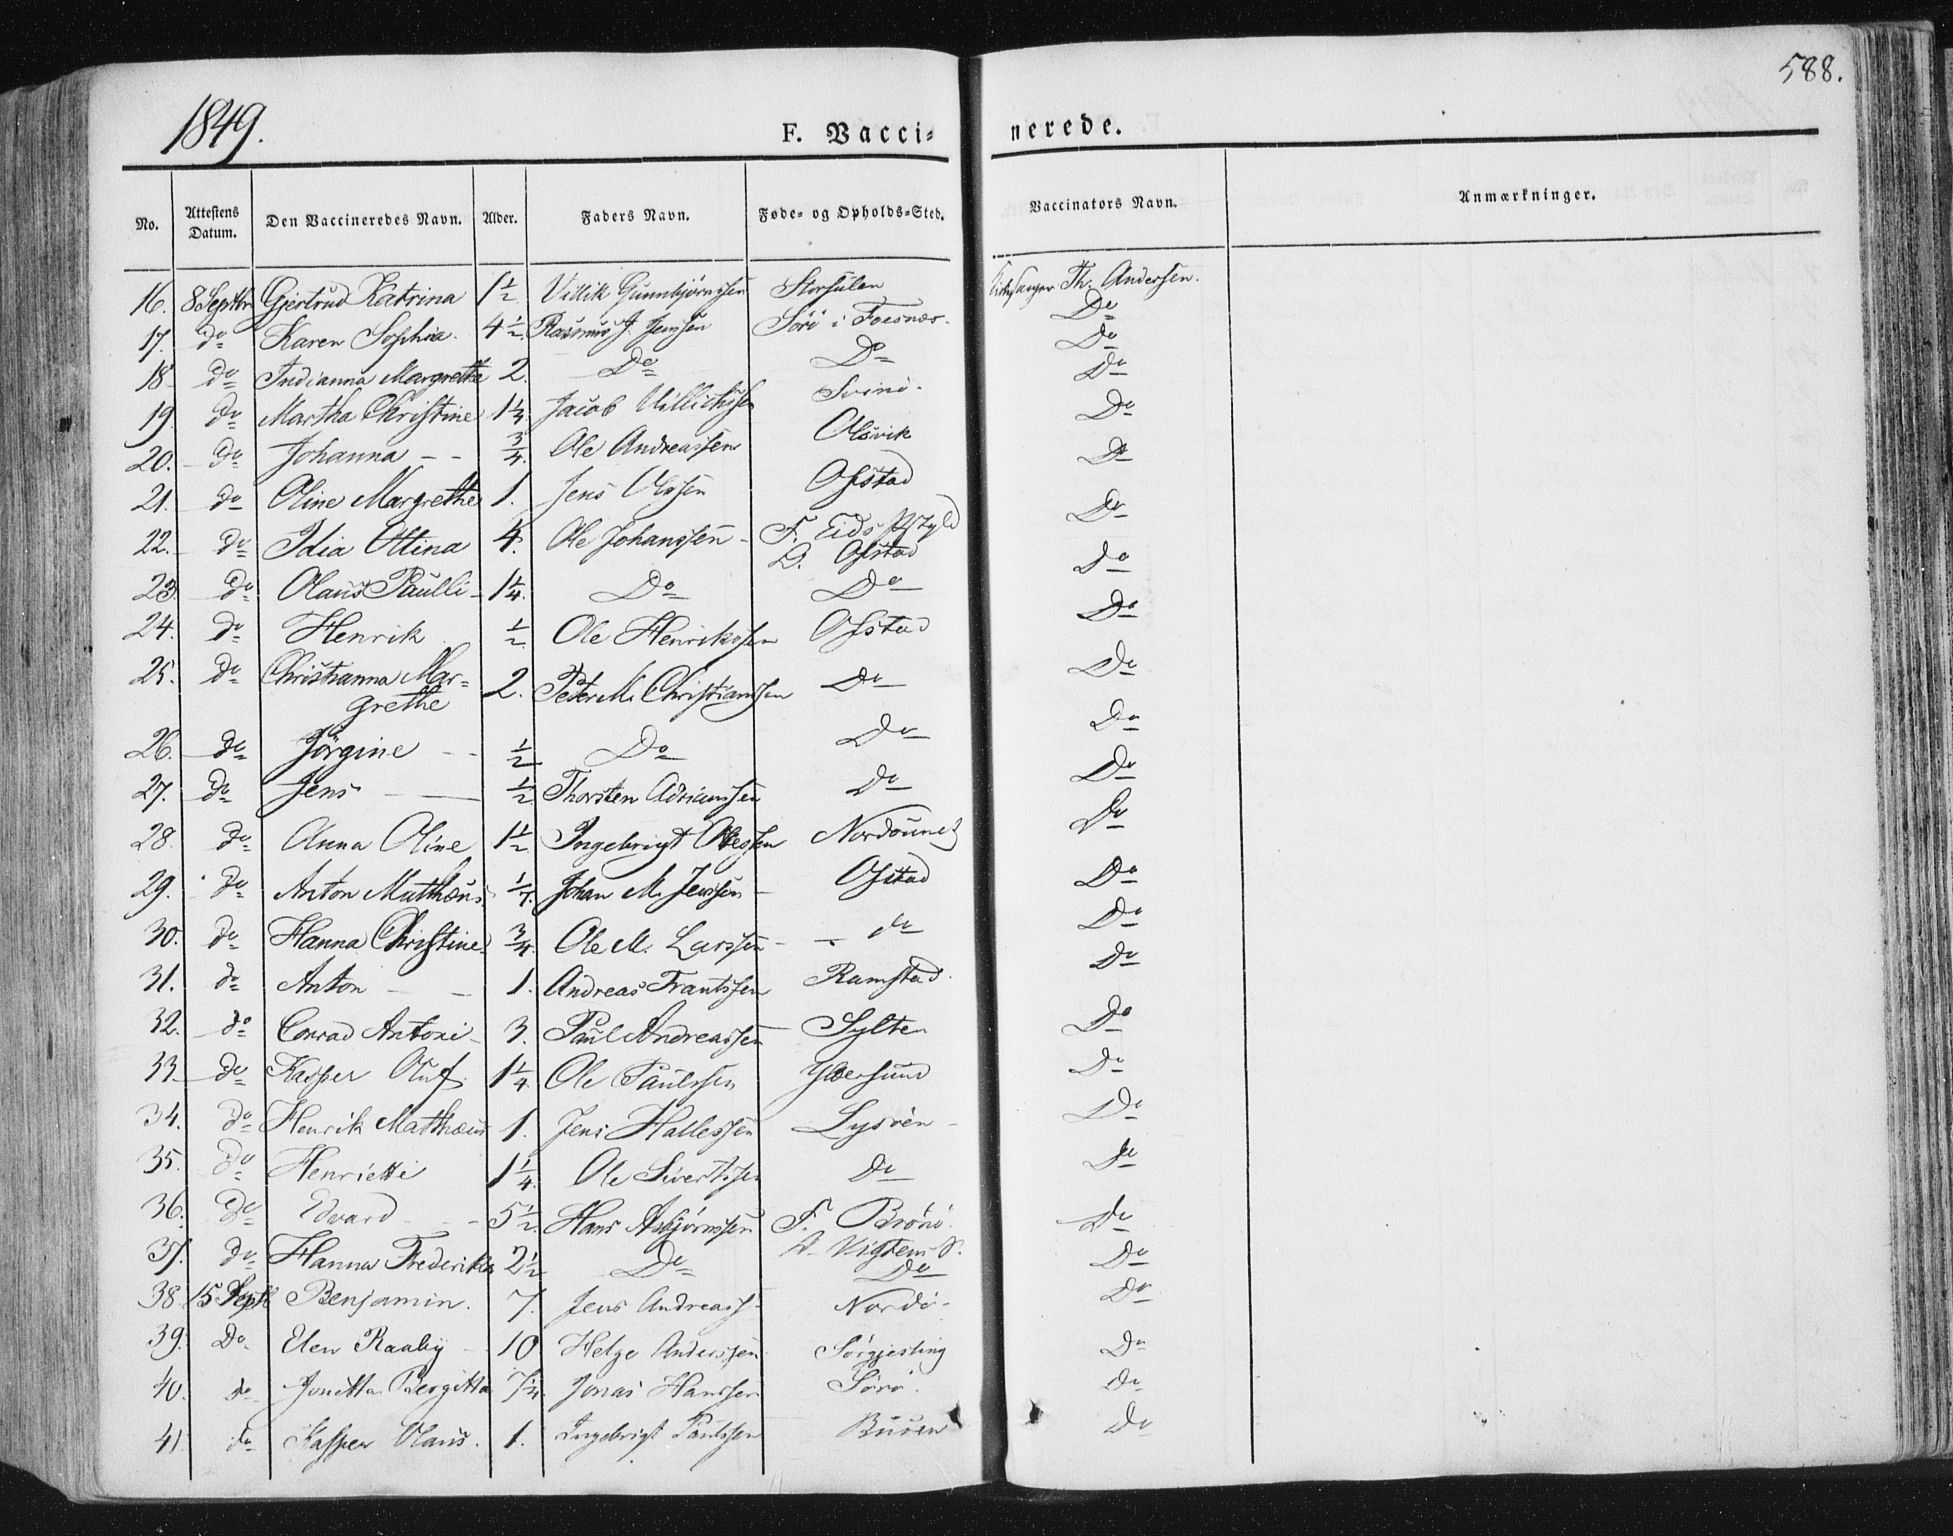 588.
1849.
F. Vacci- nerede.
No. Attestens Datum. Den Vaccineredes Navn. Alder. Faders Navn. Føde- og Opholds-Sted. Vaccinators Navn. Anmærkninger.
16. 8 Septbr Gjertrud Katrina 1 1/2 Villik Gunnbjørnssen Storsulen Kirkesanger Th. Andersen.
17. do Karen Sophia. 4 1/2 Rasmus J. Jenssen Sörö i Foesnæs. Do
18 do Indianna Margrethe 2. Do Do Do
19. do Martha Christine 1 1/4 Jacob Villichssen Svinö. Do
20. do Johanna 3/4. Ole Andreassen Olsvik Do
21. do Oline Margrethe 1. Jens Olssen Ofstad Do
22. do Idia Ottina 4. Ole Johanssen F. Eids
D. Ofstad Do
23 do Olaus Paulli 1 1/4. Do Do Do
24. do Henrik 1/2. Ole Henrikssen Ofstad Do
25. do Christianna Mar-
grethe 2. Peter M. Christianssen Do Do
26. do Jörgine 1/2 Do Do Do
27. do Jens 1/2 Thorsten Adrianssen Do Do
28. do Anna Oline 1 1/2. Ingebrigt Olessen Do
29. do Anton Matthæus 1/7. Johan M. Jenssen Ofstad Do
30. do Hanna Christine 3/4. Ole M. Larssen do Do
31. do Anton 1. Andreas Frantssen Ramstad. Do
32. do Conrad Antoni 3. Paul Andreassen Sylten Do
33 do Kasper Oluf. 1 1/4. Ole Paulssen Ydersund Do
34. do Henrik Matthæus 1. Jens Hallessen Lysöen Do
35. do Henriette 1 1/4. Ole Sivertssen Do Do
36. do Edvard 5 1/2. Hans Asbjørnssen F. Brönö.
O. Vigtens P. Do
37. do Hanna Frederikke 2 1/2 Do Do Do
38 15 Septb Benjamin. 7. Jens Andreass Nordö. Do
39. Do. Elen Raaby 10 Helge Anderssen Sörgjesling Do
40. do Jonetta Bergitta 7 1/4. Jonas Hanssen Sörö. Do
41 do Kasper Olaus. 1. Ingebrigt Paulssen Buöen Do